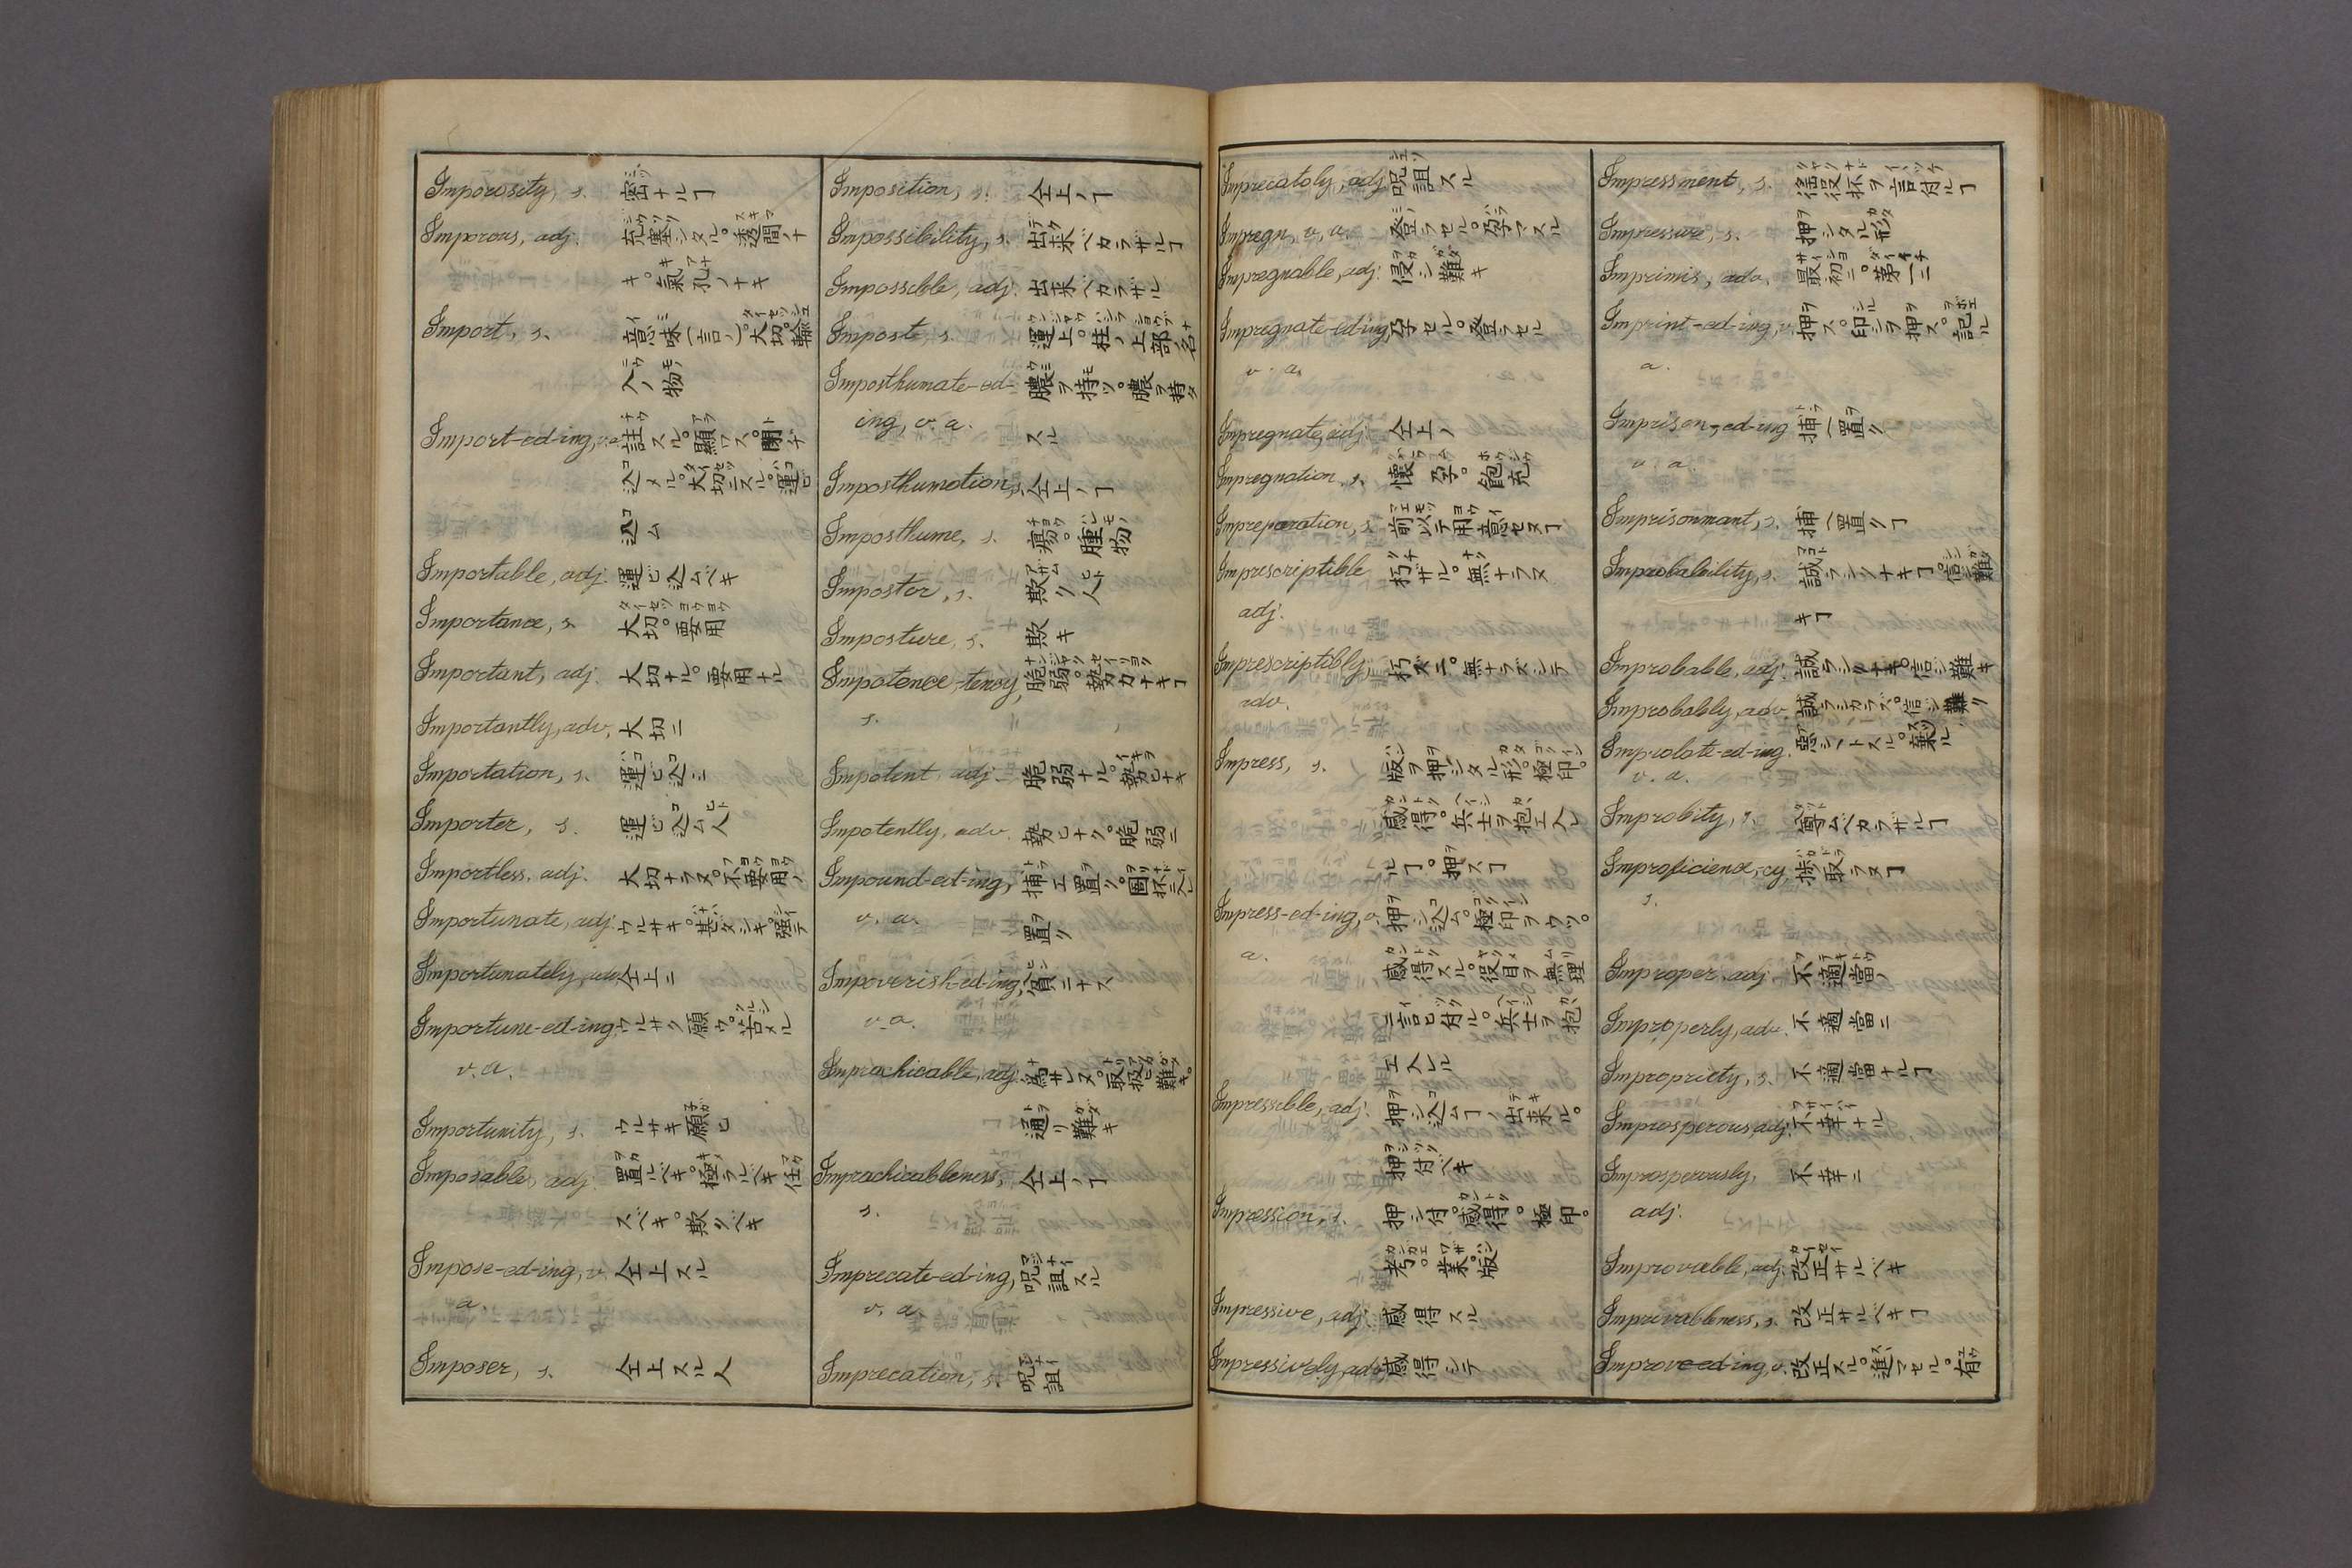 Imporosity, s. 密ナルヿ
Imporous, adj. 充塞シタル。透間ノナ
キ。氣孔ノナキ
Import, s. 意味(言ノ)。大切。輸
入ノ物
Import-ed-ing, v.a. 註スル。顯ワス。閉ヂ
込メル。大切ニスル。運ビ
込ム
Importable, adj. 運ビ込ムベキ
Importance, s. 大切。要用
Important, adj. 大切ナル。要用ナル
Importantly, adv. 大切ニ
Importation, s. 運ビ込ニ
Importer, s. 運ビ込ム人
Importless, adj. 大切ナラヌ。不要用ノ
Importunate, adj. ウルサキ。甚タシキ。強テ
Importunately, adv. 仝上ニ
Importune-ed-ing, ウルサク願ウ。苦メル
v.a.
Importunity, s. ウルサキ願ヒ
Imposable, adj. 置ルベキ。極ラルベキ。任
ズベキ。欺クベキ
Impose-ed-ing, v. 仝上スル
a.
Imposer, s. 仝上スル人
Imposition, s. 仝上ノヿ
Impossibility, s. 出来ベカラザルヿ
Impossible, adj. 出来ベカラザル
Imposte, s. 運上。柱ノ上部ノ名
Imposthumate-ed- 膿ヲ持ツ。膿ヲ持タ
ing, v.a. スル
Imposthumation, s. 仝上ノヿ
Imposthume, s. 瘍。腫物
Impostor, s. 欺ク人
Imposture, s. 欺キ
Impotence-tency, 脆弱。勢力ナキヿ
s.
Impotent, adj. 脆弱ナル。勢ヒナキ
Impotently, adv. 勢ヒナク。脆弱ニ
Impound-ed-ing, 捕エ置ク。圍杯ニ入レ
v.a. 置ク
Impoverish-ed-ing, 貧ニナス
v.a.
Imprachicable, adj. 為サレヌ。取扱ヒ難キ。
通リ難キ
Imprachicableness, 仝上ノヿ
s.
Imprecate-ed-ing, 呪詛スル
v.a.
Imprecation, s. 呪詛
Imprecatoly, adj. 呪詛スル
Impregn, v.a. 登ラセル。孕マスル
Impregnable, adj. 侵シ難キ
Impregnate-ed-ing, 孕セル。登ラセル
v.a.
Impregnate, adj. 仝上ノ
Impregnation, s. 懐孕。飽充
Impreparation, s. 前以テ用意セヌヿ
Imprescriptible 朽ザル。無ナラヌ
adj.
Imprescriptibly, 朽ズニ。無ナラズシテ
adv.
Impress, s. 版ヲ押シタル形。極印。
感得。兵士ヲ抱エ入レ
ルヿ。押スヿ
Impress-ed-ing, v. 押シ込ム。極印ヲウツ。
a. 感得スル。役目ヲ無理
ニ言ヒ付ル。兵士ヲ抱
エ入レル
Impressible, adj. 押シ込ムヿノ出来ル。
押付ベキ
Impression, s. 押シ付。感得。極印。
考。業。版
Impressive, adj. 感得スル
Impressively, adv. 感得シテ
Impressment, s. 徭役杯ヲ言付ルヿ
Impressure, s. 押シタル形
Imprimis, adv. 最初ニ。第一ニ
Imprint-ed-ing, v. 押ス。印シヲ押ス。記ル
a.
Imprison-ed-ing 捕ヘ置ク
v.a.
Imprisonmant, s. 捕ヘ置クヿ
Improbability, s. 誠ラシクナキヿ。信シ難
キヿ
Improbable, adj. 誠ラシクナキ。信シ難キ
Improbably, adv. 誠ラシカラズ。信シ難ク
Improbate-ed-ing. 悪シヽトスル。棄ル
v.a.
Improbity, s. 尊ムベカラザルヿ
Improficience, cy, 捗取ラヌヿ
s.
Improper, adj. 不適當ノ
Improperly, adv. 不適當ニ
Impropriety, s. 不適當ナルヿ
Improsperous adj. 不幸ナル
Improsperously, 不幸ニ
adj.
Improvable, adj. 改正サルベキ
Improvableness, s. 改正サルベキヿ
Improve-ed-ing, v. 改正スル。進マセル。有